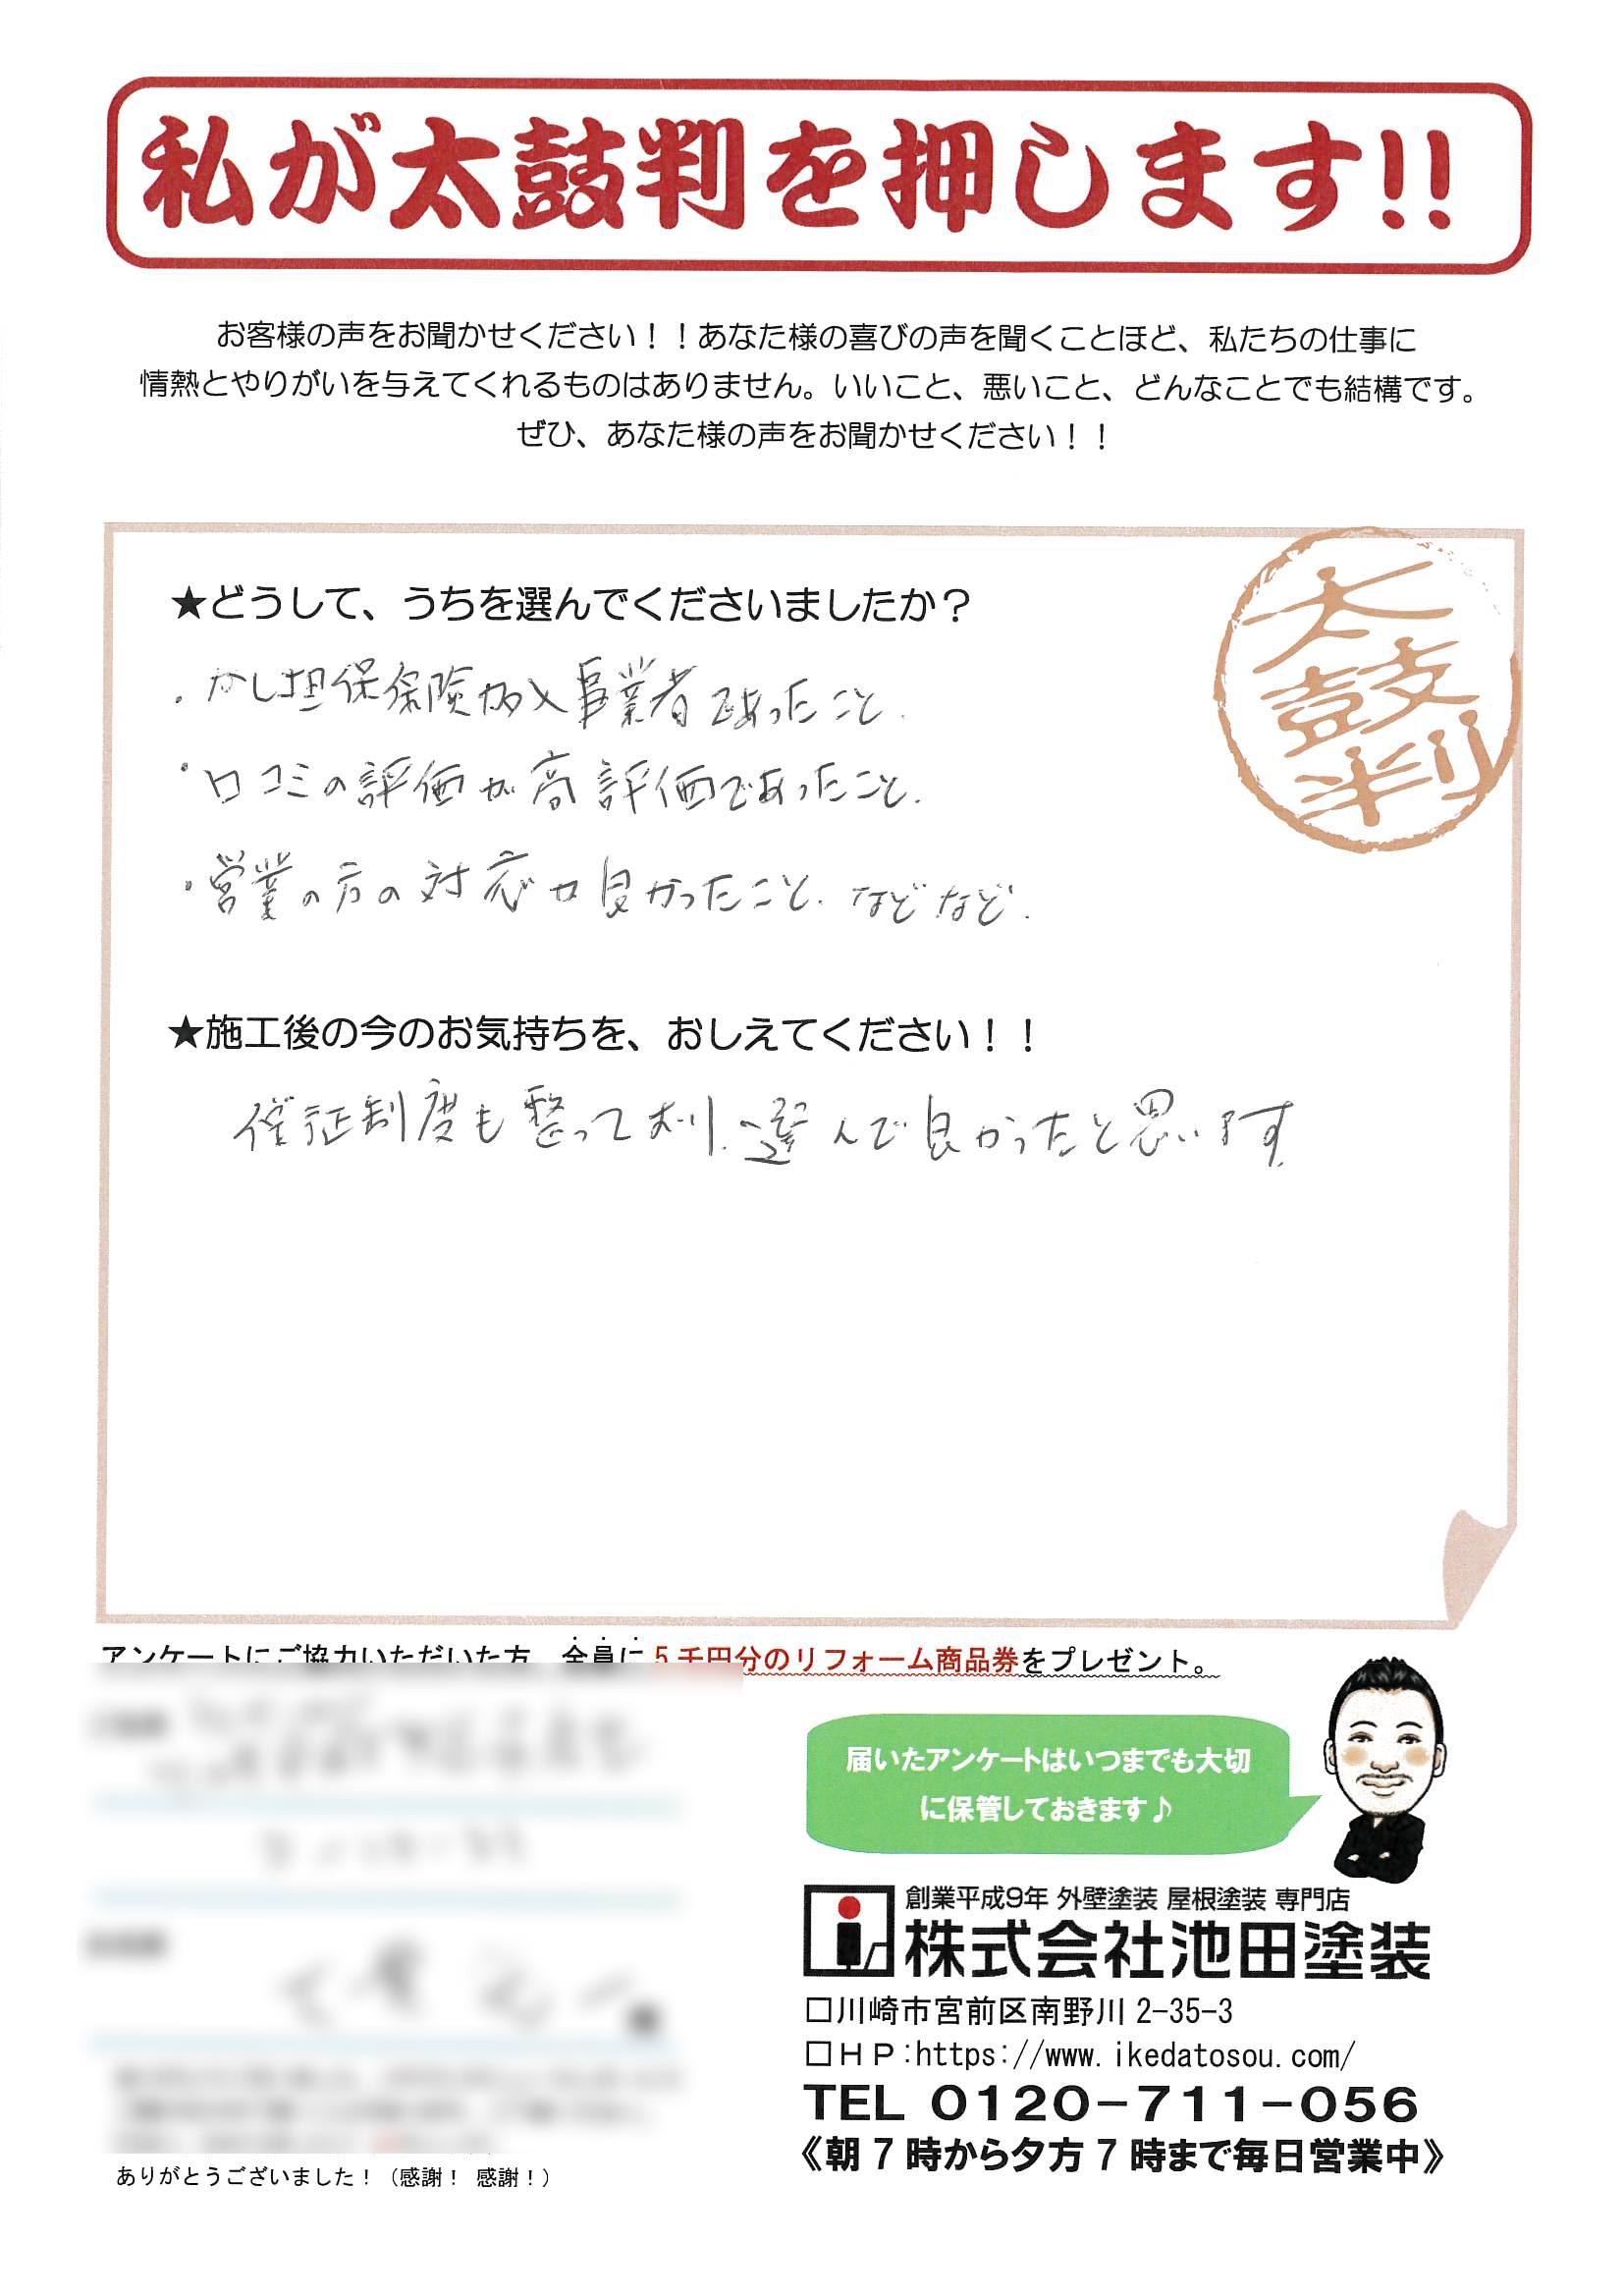 私が太鼓判を押します!!
お客様の声をお聞かせください！！あなた様の喜びの声を聞くことほど、私たちの仕事に
情熱とやりがいを与えてくれるものはありません。いいこと、悪いこと、どんなことでも結構です。
ぜひ、あなた様の声をお聞かせください！！
太鼓判
★どうして、うちを選んでくださいましたか？
・かし担保保険加入事業者であったこと.
・口コミの評価が高評価であったこと.
・営業の方の対応が良かったこと. などなど.
★施工後の今のお気持ちを、おしえてください！！
保証制度も整っており、選んで良かったと思います
アンケートにご協力いただいた方、全員に５千円分のリフォーム商品券をプレゼント。
届いたアンケートはいつまでも大切
に保管しておきます♪
創業平成9年 外壁塗装 屋根塗装 専門店
株式会社池田塗装
□川崎市宮前区南野川 2-35-3
□ＨＰ:https://www.ikedatosou.com/
TEL 0120-711-056
《朝７時から夕方７時まで毎日営業中》
ありがとうございました！（感謝！ 感謝！）